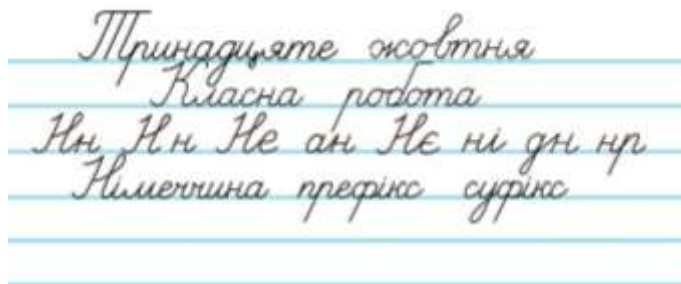 Тринадцяте жовтня
Класна робота
Нн Н н Не ан Нє ні дн нр
Німеччина префікс суфікс